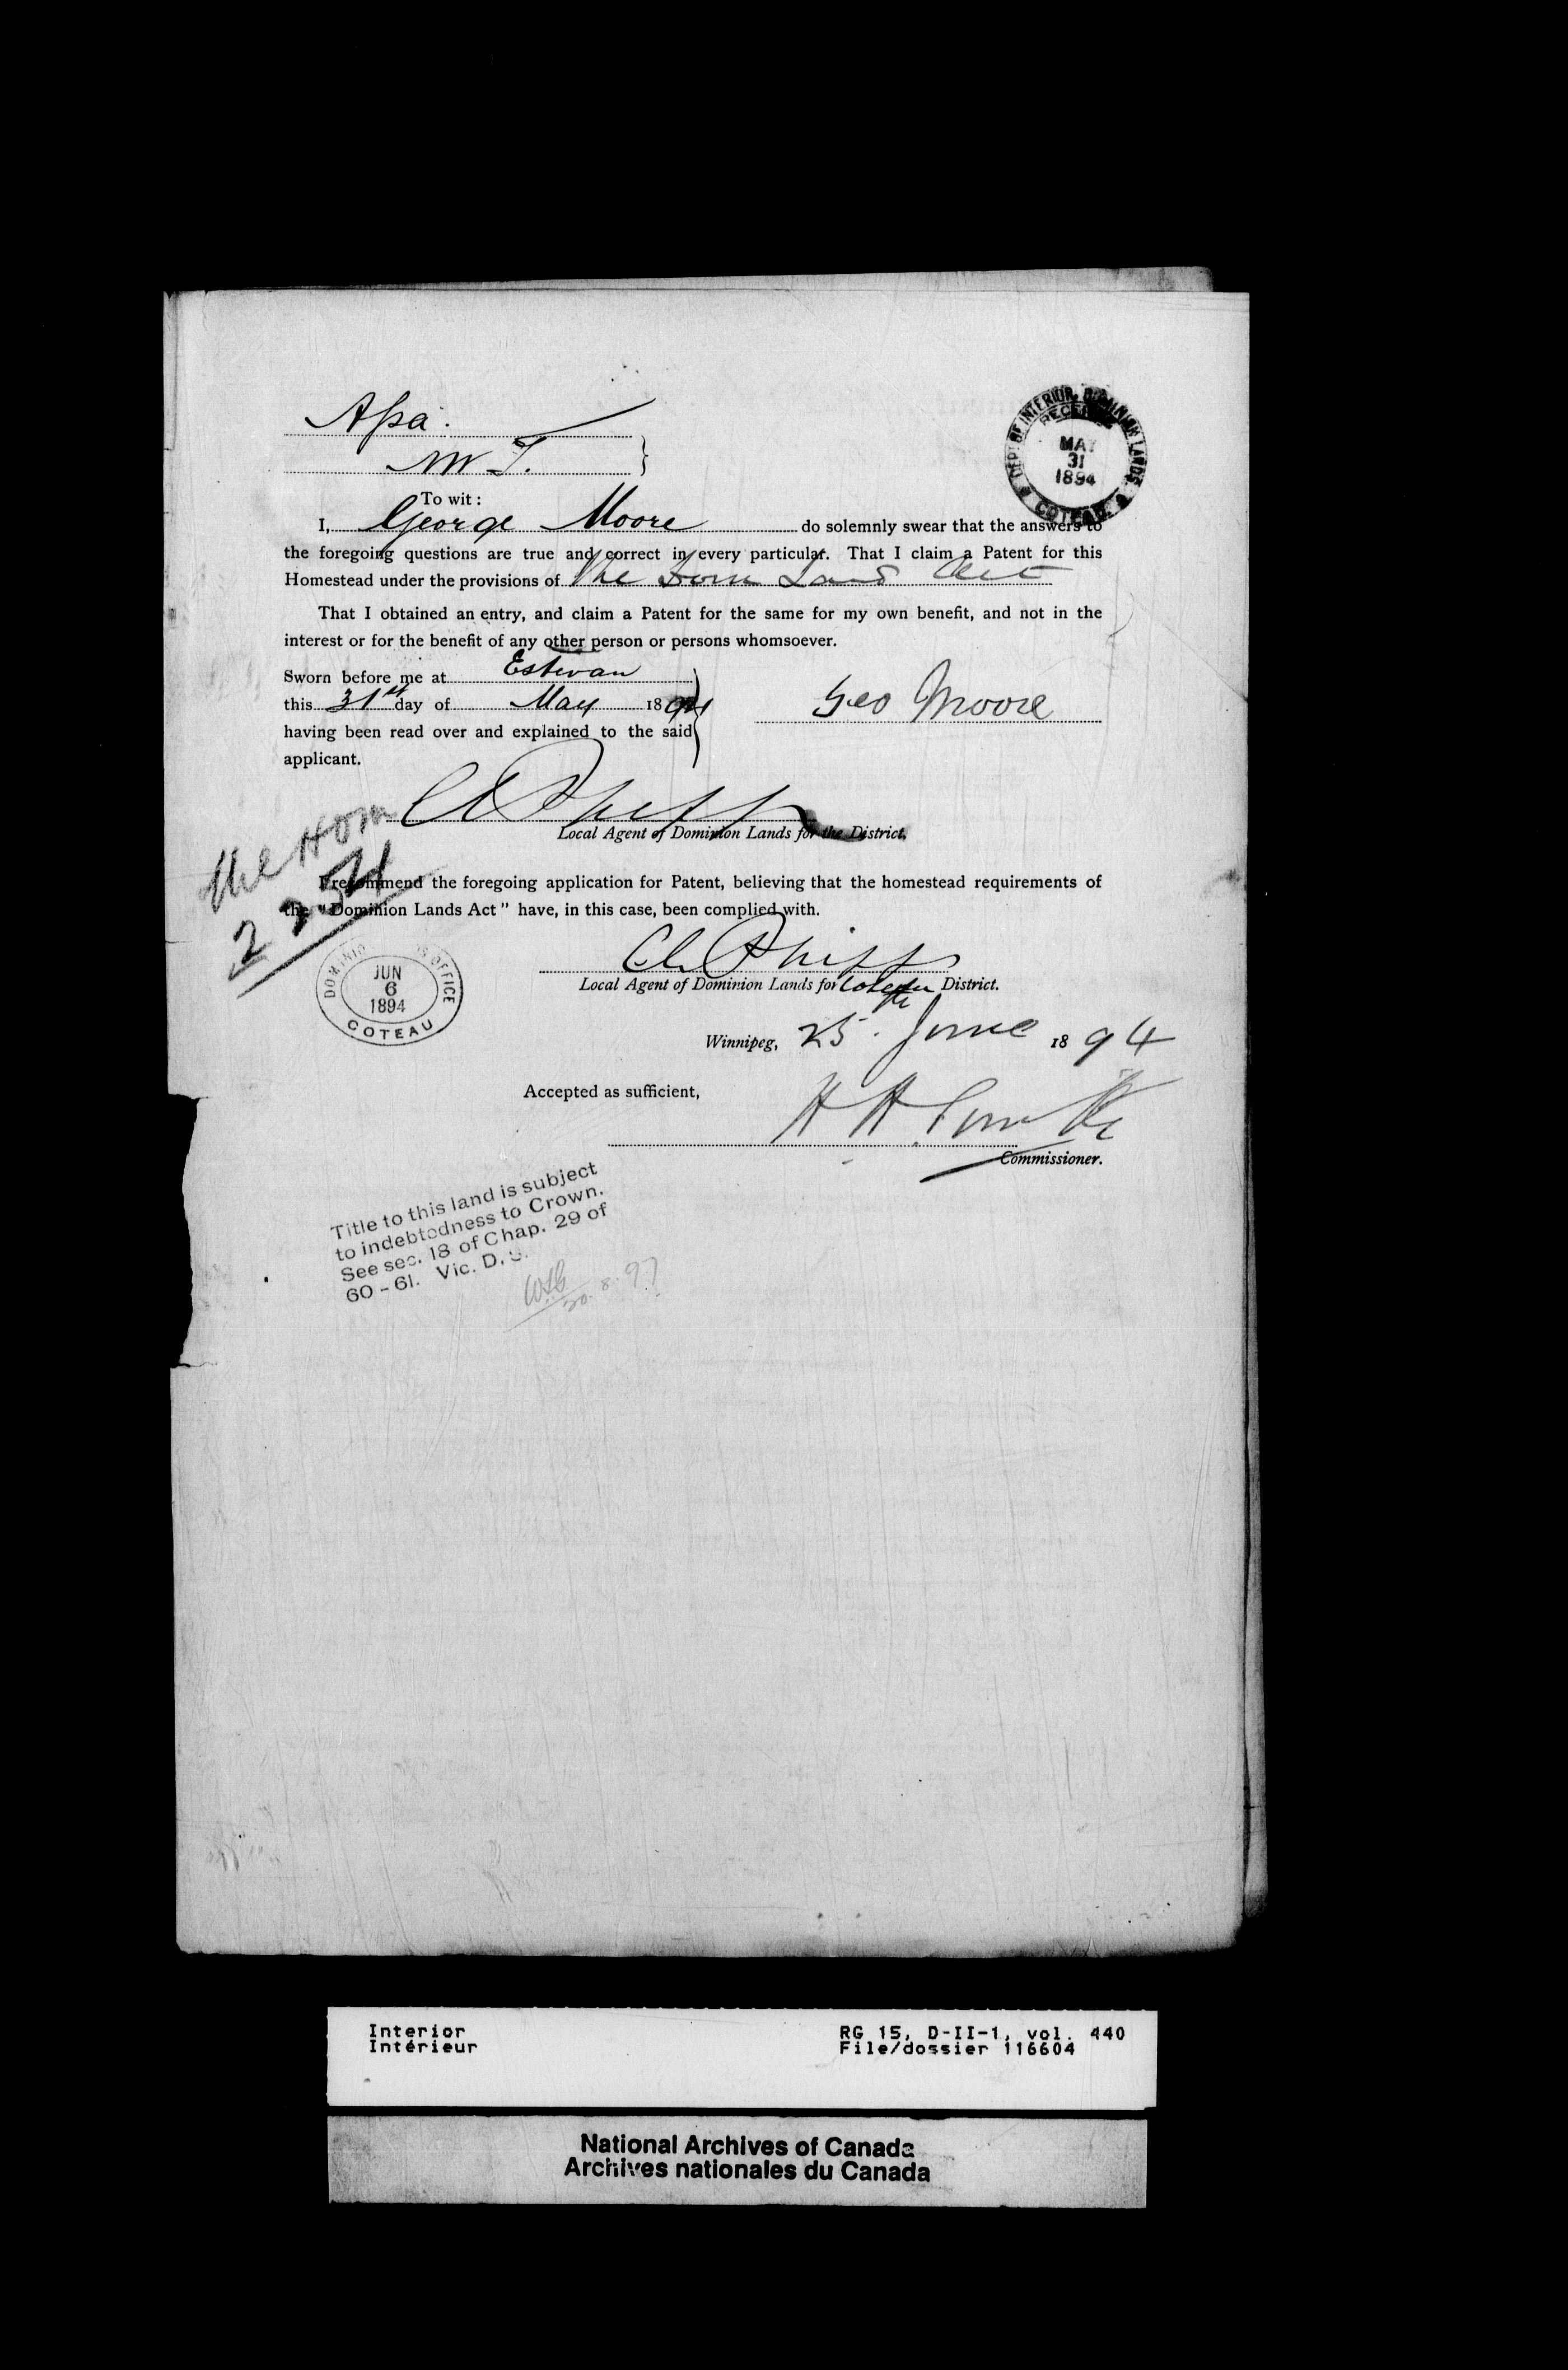 Assa.
N W T.
To wit:
I, George Moore do solemnly swear that the answers to
the foregoing questions are true and correct in every particular. That I claim a Patent for this
Homestead under the provisions of The Dom Land Act
That I obtained an entry, and claim a Patent for the same for my own benefit, and not in the
interest or for the benefit of any other person or persons whomsoever.
Sworn before me at Estevan
this 31st day of May 1894
having been read over and explained to the said
applicant.
Geo Moore
DEPT OF INTERIOR, DOMINION LANDS
RECEIVED
MAY
31
1894
COTEAU
C E Phipps
Local Agent of Dominion Lands for the District.
The Hom
I recommend the foregoing application for Patent, believing that the homestead requirements of
the "Dominion Lands Act" have, in this case, been complied with.
C E Phipps
Local Agent of Dominion Lands for Coteau District.
DOMINION LANDS OFFICE
JUN
6
1894
COTEAU
Winnipeg, 25th June 1894
Accepted as sufficient,
H H Smith
Commissioner.
Title to this land is subject
to indebtedness to Crown.
See sec. 18 of Chap. 29 of
60-61. Vic. D. S.
20.8.97
Interior
Intérieur
RG 15, D-II-1, vol. 440
File/dossier 116604
National Archives of Canada
Archives nationales du Canada